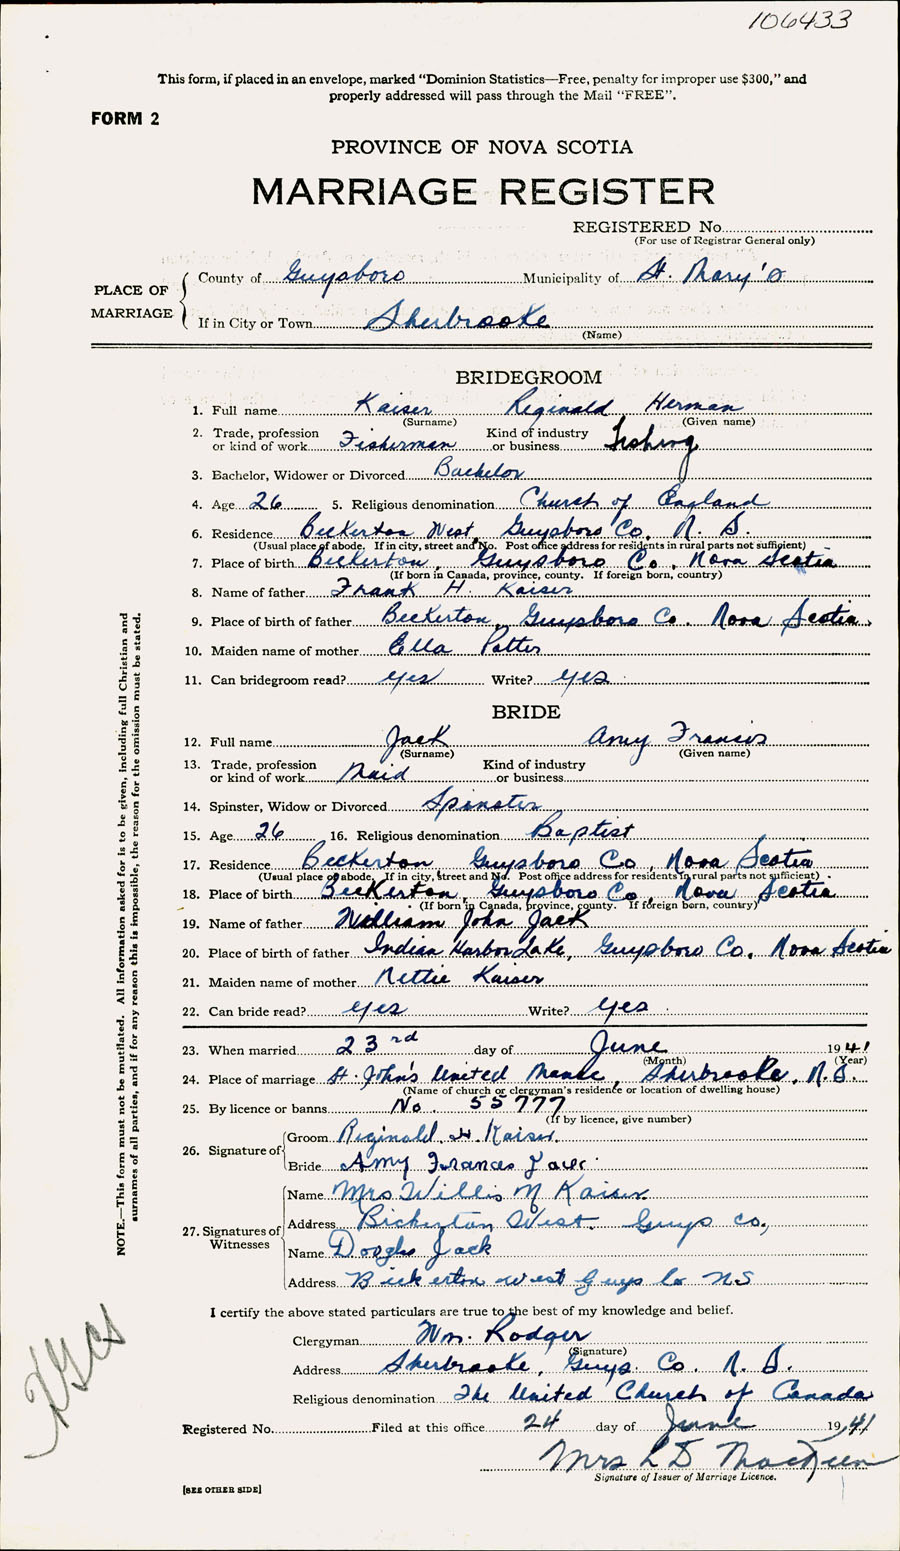 106433
This form, if placed in an envelope, marked "Dominion Statistics—Free, penalty for improper use $300," and
properly addressed will pass through the Mail "FREE".
FORM 2
PROVINCE OF NOVA SCOTIA
MARRIAGE REGISTER
REGISTERED No
(For use of Registrar General only)
PLACE OF MARRIAGE
County of Guysboro Municipality of St. Mary's
If in City or Town Sherbrooke
(Name)
BRIDEGROOM
1. Full name Kaiser Reginald Herman
(Surname) (Given name)
2. Trade, profession or kind of work Fisherman Kind of industry or business Fishing
3. Bachelor, Widower or Divorced Bachelor
4. Age 26 5. Religious denomination Church of England
6. Residence Beckerton West, Guysboro Co. N. S.
(Usual place of abode. If in city, street and No. Post office address for residents in rural parts not sufficient)
7. Place of birth Beckerton, Guysboro Co. Nova Scotia
(If born in Canada, province, county. If foreign born, country)
8. Name of father Frank H. Kaiser
9. Place of birth of father Beckerton, Guysboro Co. Nova Scotia.
10. Maiden name of mother Ella Potter
11. Can bridegroom read? yes Write? yes
BRIDE
12. Full name Jack Amy Francis
(Surname) (Given name)
13. Trade, profession or kind of work Maid Kind of industry or business
14. Spinster, Widow or Divorced Spinster
15. Age 26 16. Religious denomination Baptist
17. Residence Beckerton Guysboro Co, Nova Scotia
(Usual place of abode. If in city, street and No. Post office address for residents in rural parts not sufficient)
18. Place of birth Beckerton, Guysboro Co, Nova Scotia
(If born in Canada, province, county. If foreign born, country)
19. Name of father William John Jack
20. Place of birth of father Indian Harbor Lake, Guysboro Co. Nova Scotia
21. Maiden name of mother Nettie Kaiser
22. Can bride read? yes Write? yes
23. When married 23rd day of June 1941
(Month) (Year)
24. Place of marriage St. John's United Manse, Sherbrooke, N.S.
(Name of church or clergyman's residence or location of dwelling house)
25. By licence or banns No. 55777
(If by licence, give number)
26. Signature of
Groom Reginald H Kaiser.
Bride Amy Frances Jack
27. Signatures of Witnesses
Name Mrs Willis M Kaiser
Address Bickerton West. Guys Co,
Name Douglas Jack
Address Bickerton west Guys Co NS
I certify the above stated particulars are true to the best of my knowledge and belief.
Clergyman Wm. Rodger
(Signature)
Address Sherbrooke, Guys. Co. N. S.
Religious denomination The United Church of Canada
Registered No. Filed at this office 24 day of June 1941
Mrs L D MacKeen
Signature of Issuer of Marriage Licence.
[SEE OTHER SIDE]
NOTE.—This form must not be mutilated. All information asked for is to be given, including full Christian and
surnames of all parties, and if for any reason this is impossible, the reason for the omission must be stated.